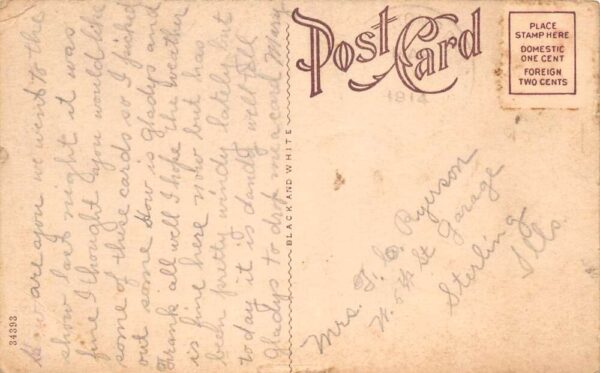 How are you we went to the
show last night it was
fine I thought you would like
some of these cards so I picked
out some How is Gladys and
Frank all well I hope the weather
is fine here now but has
been pretty windy lately but
today it is dandy well tell
Gladys to drop me a card Mary
Post Card
1914
PLACE
STAMP HERE
DOMESTIC
ONE CENT
FOREIGN
TWO CENTS
BLACK AND WHITE
Mrs. F. C. Ryerson
W. 5th St Garage
Sterling
Ills.
34393